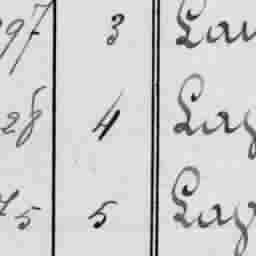 97 3 Lau
28 4 Lag
75 5 Lag